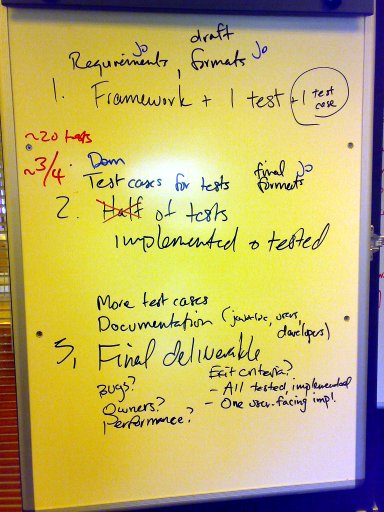 draft
Jo
Requirements, formats Jo
1. Framework + 1 test + 1 test case
~20 tests
~3/4
Dom
Test cases for tests
final Jo
formats
2. Half of tests
implemented + tested
More test cases
Documentation (javadoc, users, developers)
3, Final deliverable
Exit criteria?
Bugs?
- All tested, implemented
Owners?
- One user-facing impl.
Performance?